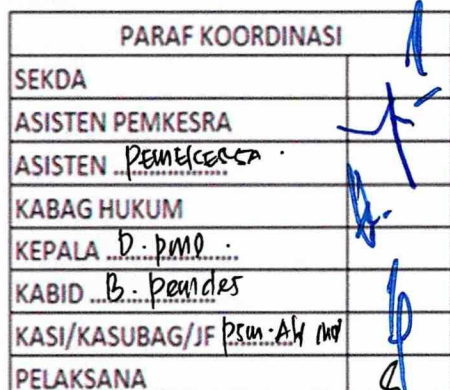 PARAF KOORDINASI
SEKDA
ASISTEN PEMKESRA
ASISTEN
KABAG HUKUM
KEPALA D. pmD.
KABID B. pemdes
KASI/KASUBAG/JF
PELAKSANA